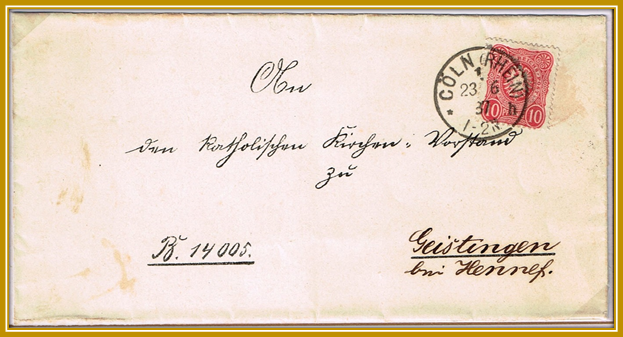 An
den Katholischen Kirchen-Vorstand
zu
B. 14005.
Geistingen
bei Hennef.
* CÖLN (RHEIN)
1
23 6
87 h
1-2N
10 10